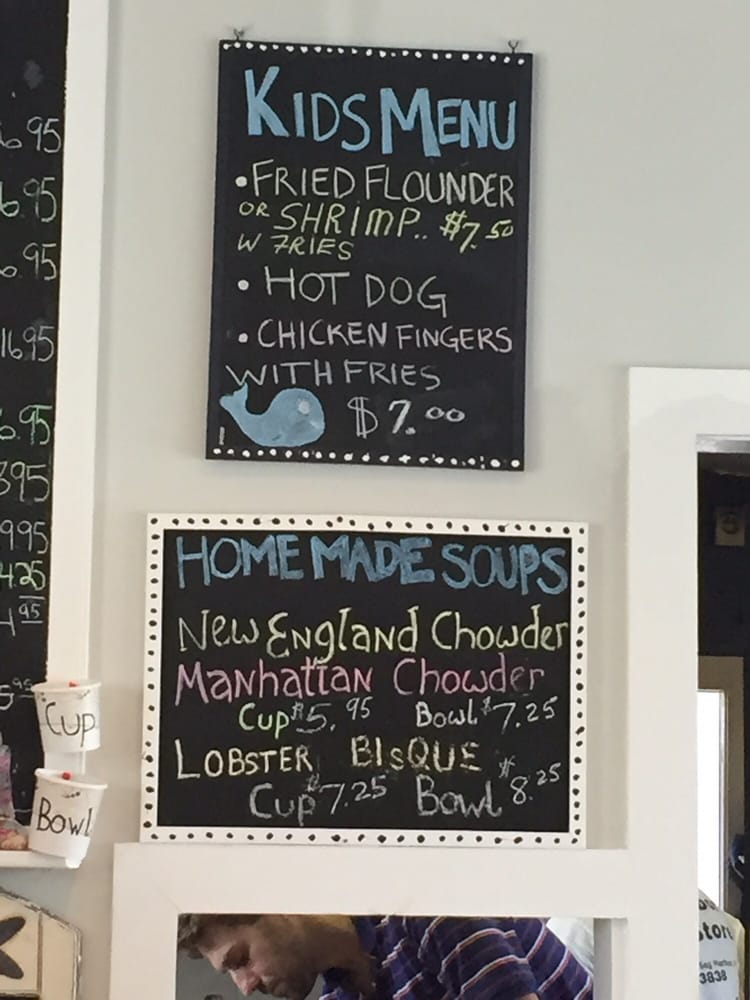 KIDS MENU
• FRIED FLOUNDER
OR SHRIMP.. $7.50
W FRIES
• HOT DOG
• CHICKEN FINGERS
WITH FRIES
$7.00
HOME MADE SOUPS
New ENGLAND Chowder
MANhattaN Chowder
Cup $5.95 Bowl $7.25
LOBSTER BISQUE
Cup $7.25 Bowl $8.25
6.95
6.95
6.95
16.95
6.95
395
9.95
4.25
4 95
5.95
Cup
Bowl
Store
3838